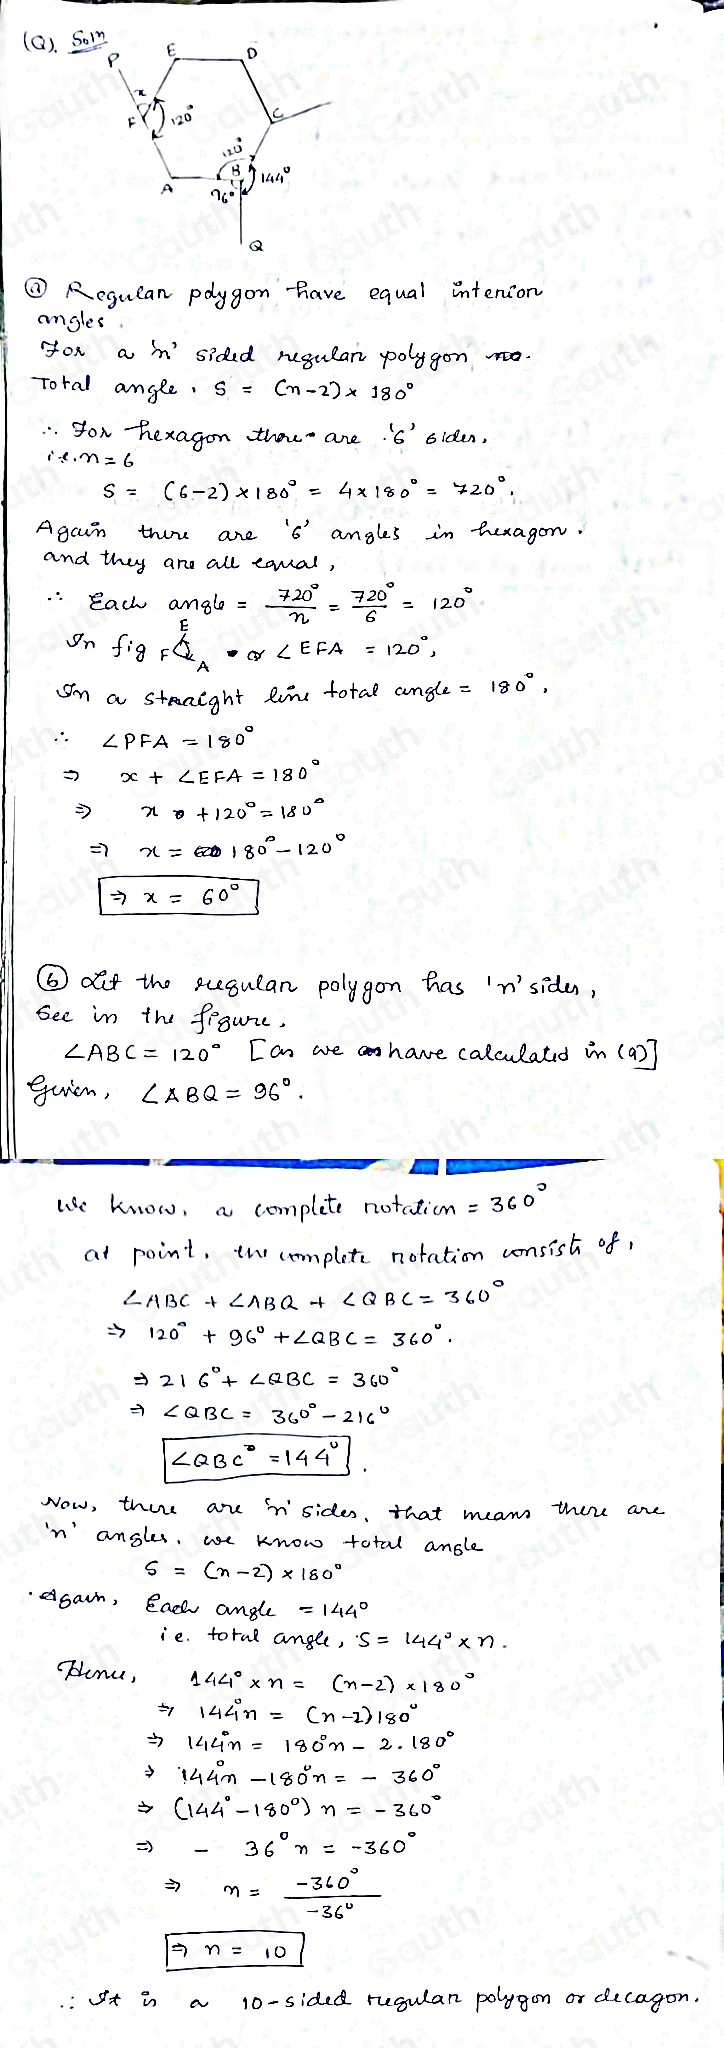 (Q). Soln
P
E
D
x
F
120°
C
120°
B
144°
A
96°
Q
(a) Regular polygon have equal interior
angles.
For a 'n' sided regular polygon
Total angle, S = (n-2) × 180°
∴ For hexagon there are '6' sides,
i.e. n = 6
S = (6-2) × 180° = 4 × 180° = 720°.
Again there are '6' angles in hexagon.
and they are all equal,
∴ Each angle = 720°/n = 720°/6 = 120°
E
In fig F A or ∠EFA = 120°,
In a straight line total angle = 180°,
∴ ∠PFA = 180°
⇒ x + ∠EFA = 180°
⇒ x + 120° = 180°
⇒ x = 180° - 120°
⇒ x = 60°
(b) Let the regular polygon has 'n' sides,
See in the figure.
∠ABC = 120° [as we have calculated in (a)]
Given, ∠ABQ = 96°.
We know, a complete rotation = 360°
at point, the complete rotation consists of,
∠ABC + ∠ABQ + ∠QBC = 360°
⇒ 120° + 96° + ∠QBC = 360°.
⇒ 216° + ∠QBC = 360°
⇒ ∠QBC = 360° - 216°
∠QBC = 144°.
Now, there are 'n' sides, that means there are
'n' angles, we know total angle
S = (n-2) × 180°
Again, Each angle = 144°
i.e. total angle, S = 144° × n.
Hence, 144° × n = (n-2) × 180°
⇒ 144°n = (n-2)180°
⇒ 144°n = 180°n - 2.180°
⇒ 144°n - 180°n = - 360°
⇒ (144° - 180°) n = -360°
⇒ - 36°n = -360°
⇒ n = -360°/-36°
⇒ n = 10
∴ It is a 10-sided regular polygon or decagon.